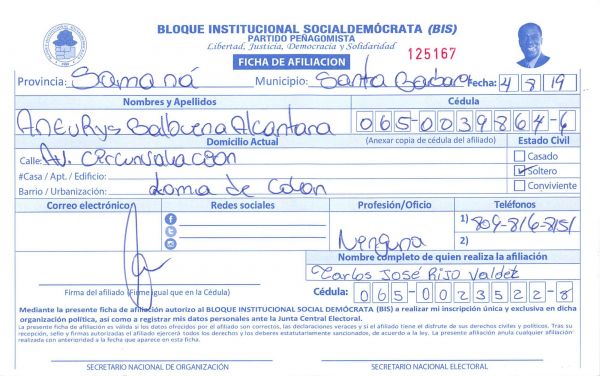 BLOQUE INSTITUCIONAL SOCIALDEMÓCRATA (BIS)
PARTIDO PEÑAGOMISTA
Libertad, Justicia, Democracia y Solidaridad
FICHA DE AFILIACION
125167
Provincia: Samaná Municipio: Santa Barbara Fecha: 4/8/19
Nombres y Apellidos Cédula
Aneurys Balbuena Alcantara 065-0039864-6
Domicilio Actual (Anexar copia de cédula del afiliado) Estado Civil
Calle: Av. Circunvalacion Casado
#Casa / Apt. / Edificio: Soltero
Barrio / Urbanización: Loma de Colon Conviviente
Correo electrónico Redes sociales Profesión/Oficio Teléfonos
1) 809-816-8151
Ninguna 2)
Nombre completo de quien realiza la afiliación
Carlos José Rijo Valdez
Firma del afiliado (Firme igual que en la Cédula) Cédula: 065-0023522-8
Mediante la presente ficha de afiliación autorizo al BLOQUE INSTITUCIONAL SOCIAL DEMÓCRATA (BIS) a realizar mi inscripción única y exclusiva en dicha
organización política, así como a registrar mis datos personales ante la Junta Central Electoral.
La presente ficha de afiliación es válida si los datos ofrecidos por el afiliado son correctos, las declaraciones veraces y si el afiliado tiene el disfrute de sus derechos civiles y políticos. Tras su
recepción, sello y firmas autorizadas el afiliado ejercerá todos los derechos y los deberes estatutariamente sancionados, de acuerdo a la ley. La presente afiliación anula cualquier afiliación
realizada con anterioridad a la fecha que aparece en esta ficha.
SECRETARIO NACIONAL DE ORGANIZACIÓN SECRETARIO NACIONAL ELECTORAL